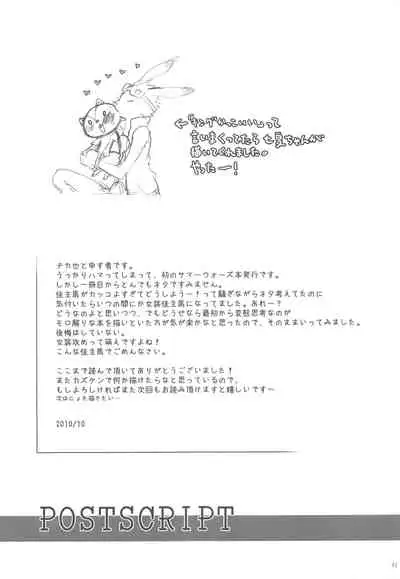 ←「キングかっこいい」って
言いまくってたら七夏ちゃんが
描いてくれました。
やったー!
チカ也と申す者です。
うっかりハマってしまって、初のサマーウォーズ本発行です。
しかし一冊目からとんでもネタですみません。
佳主馬がカッコよすぎてどうしよう~!って騒ぎながらネタ考えてたのに
気付いたらいつの間にか女装佳主馬になってました。あれー?
どうなのよと思いつつ、でもどうせなら最初から変態思考なのが
モロ解りな本を描いといた方が気が楽かなと思ったので、そのままいってみました。
後悔はしていない。
女装攻めって萌えですよね!
こんな佳主馬でごめんなさい。
ここまで読んで頂いてありがとうございました!
またカズケンで何か描けたらなと思っているので
もしよろしければまた次回もお読み頂けますと嬉しいです~
次はにょた描きたい…
2010/10
POSTSCRIPT